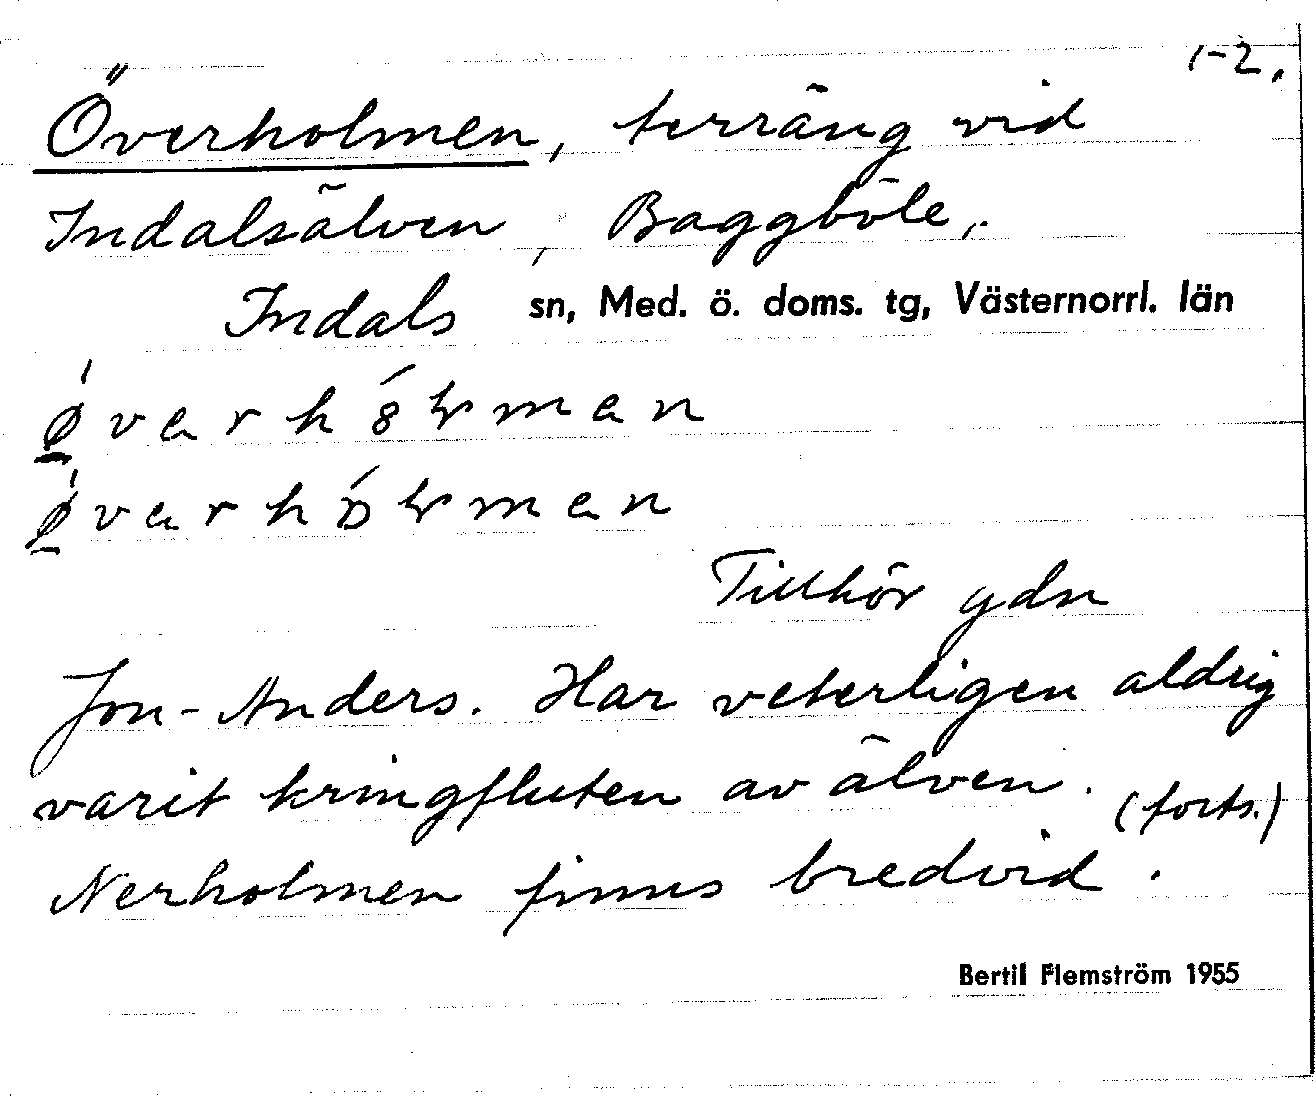 1-2.
Överholmen, terräng vid
Indalsälven, Baggböle,
Indals sn, Med. ö. doms. tg, Västernorrl. län
Tillhör gdn
Jon-Anders. Har veterligen aldrig
varit kringfluten av älven. (forts.)
Nerholmen finns bredvid.
Bertil Flemström 1955